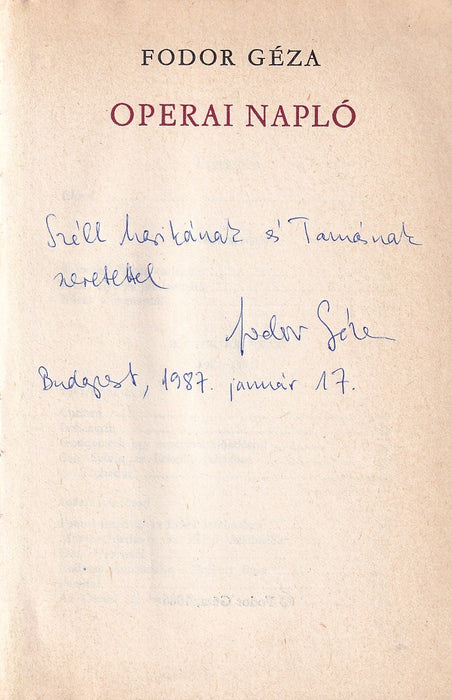 FODOR GÉZA
OPERAI NAPLÓ
Széll Marikának és Tamásnak
szeretettel
Fodor Géza
Budapest, 1987. január 17.